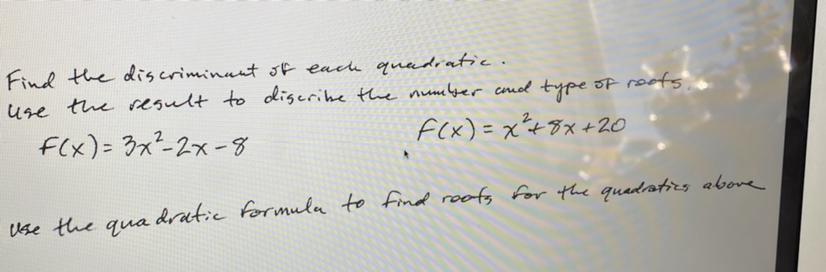 Find the discriminant of each quadratic.
Use the result to discribe the number and type of roots.
F(x) = 3x²-2x-8
F(x) = x²+8x+20
Use the quadratic formula to find roots for the quadratics above